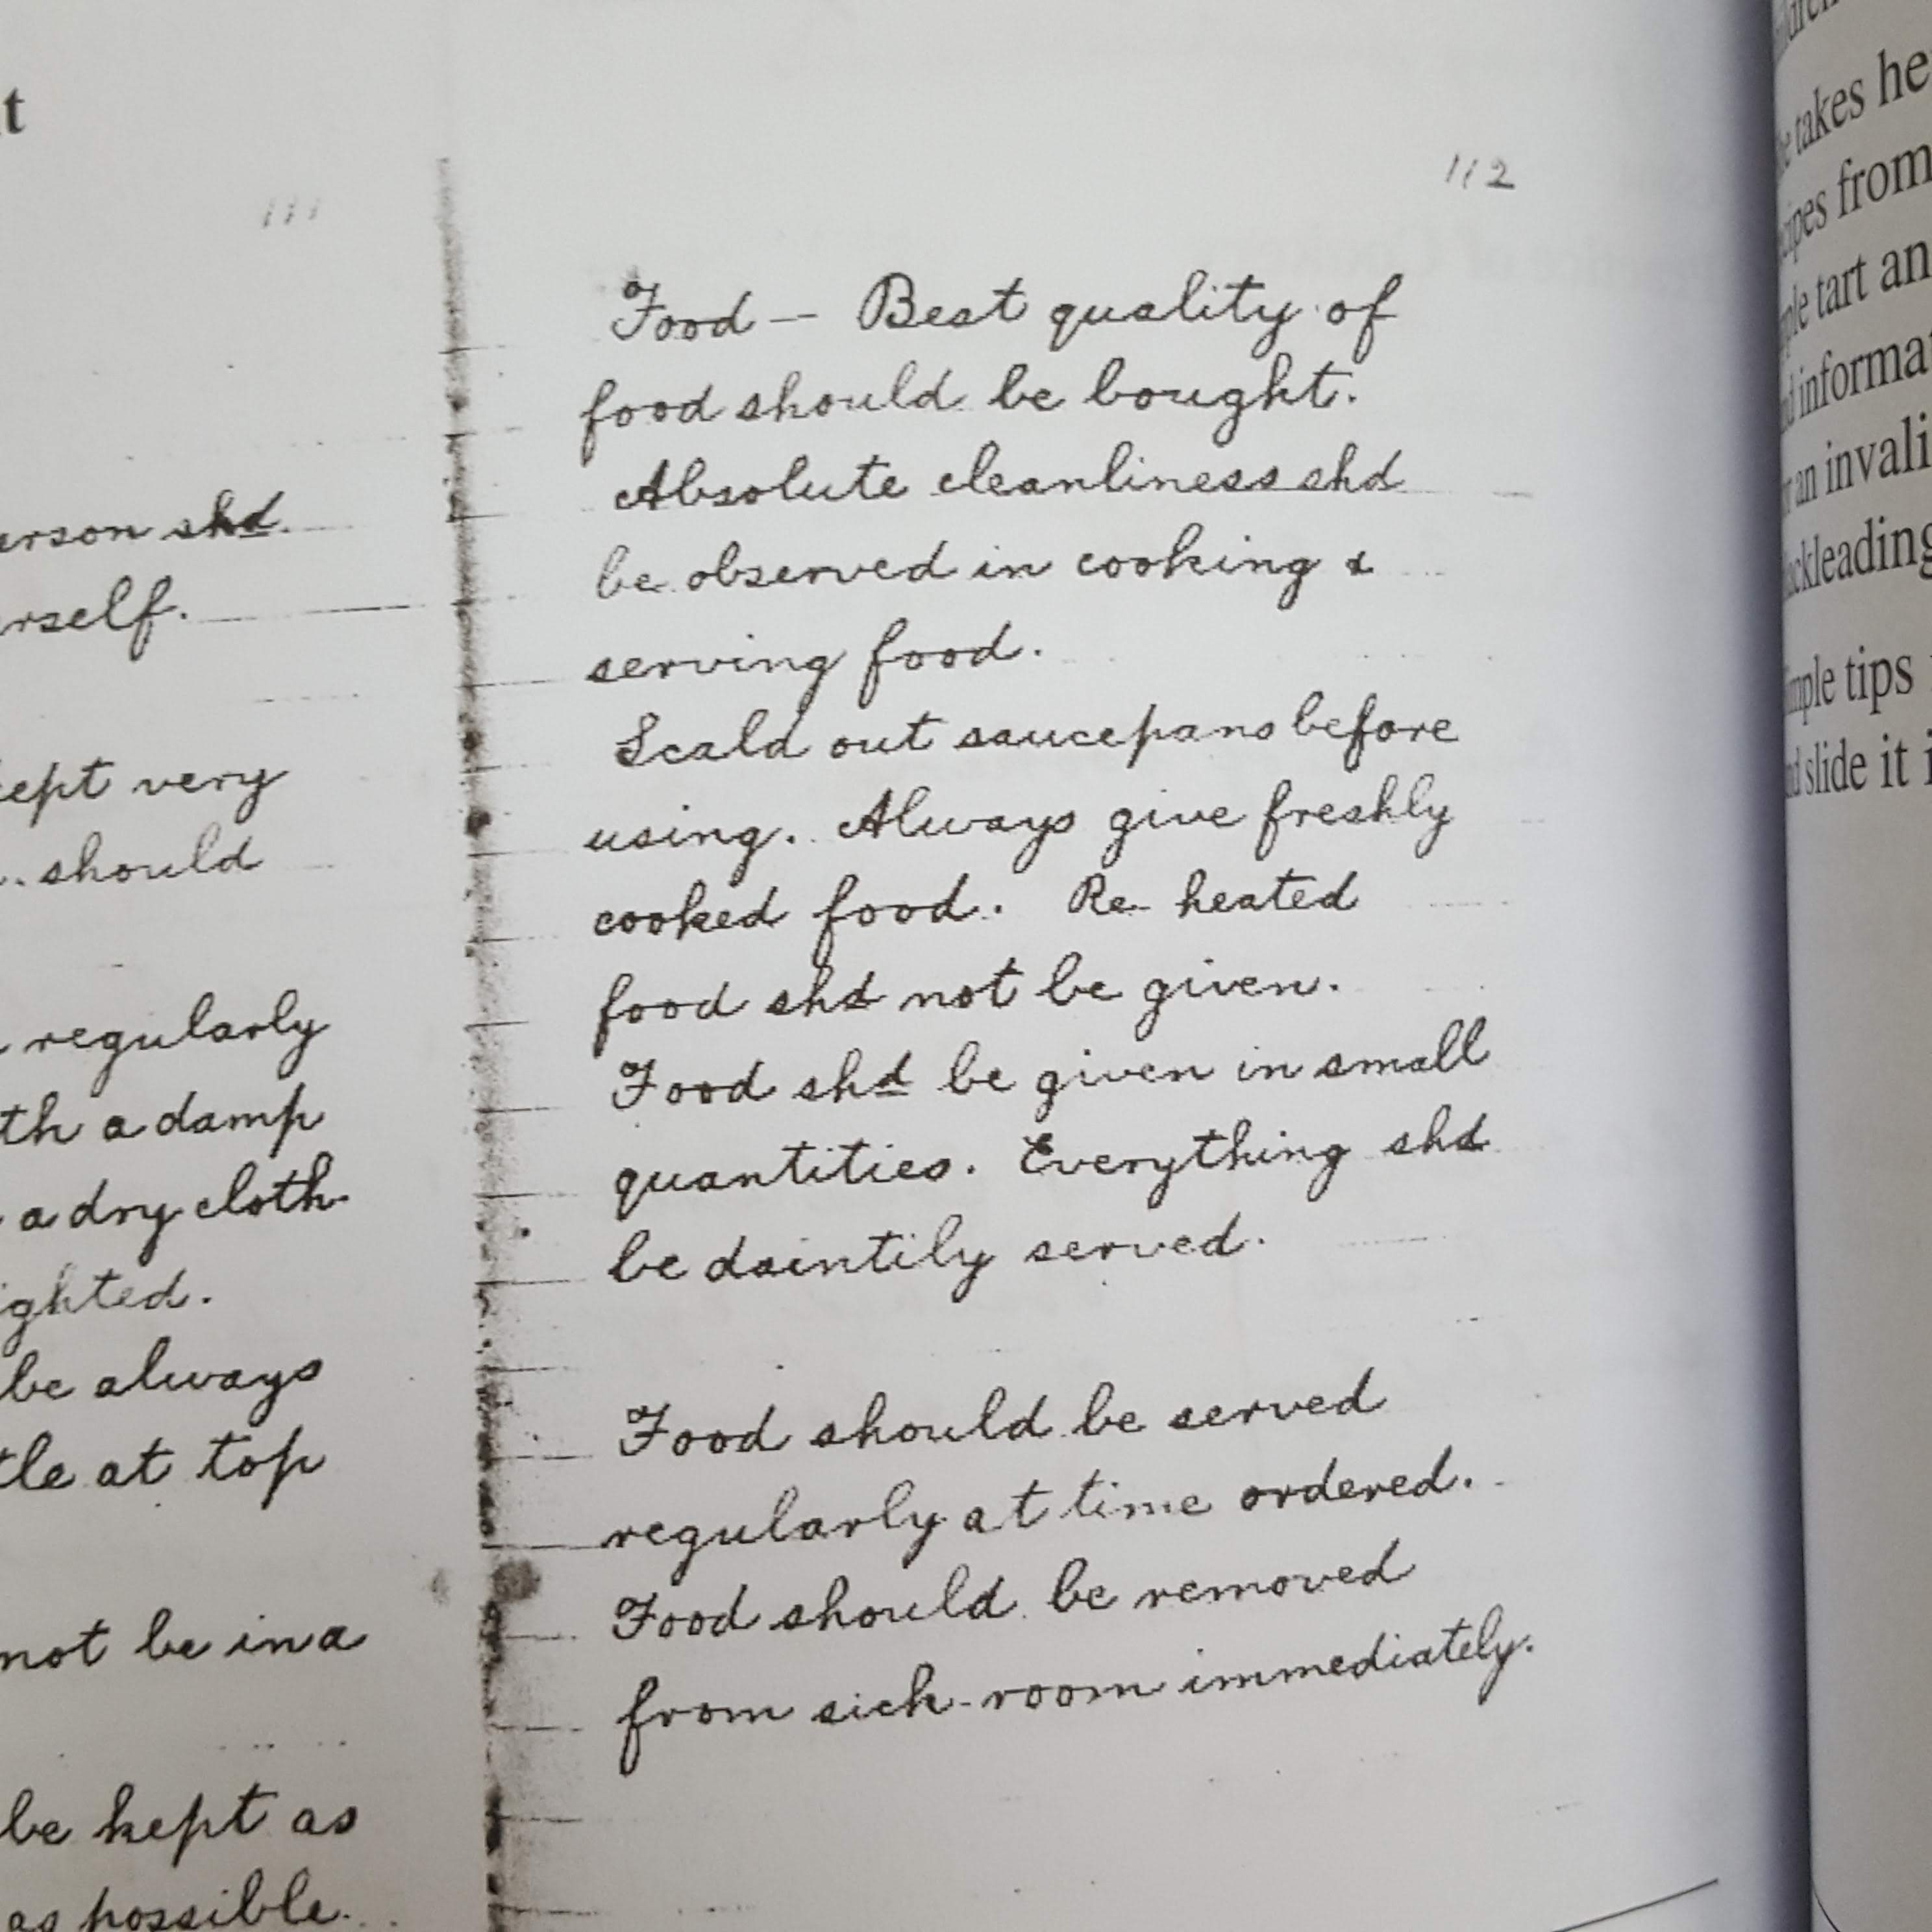 111
shd.
very
should
regularly
a damp
a dry cloth
be always
at top
not be in a
be kept as
as possible.
112
Food — Best quality of
food should be bought.
Absolute cleanliness shd
be observed in cooking &
serving food.
Scald out saucepans before
using. Always give freshly
cooked food. Re-heated
food shd not be given.
Food shd be given in small
quantities. Everything shd
be daintily served.
Food should be served
regularly at time ordered.
Food should be removed
from sick-room immediately.
takes
from
tart
tips
slide it